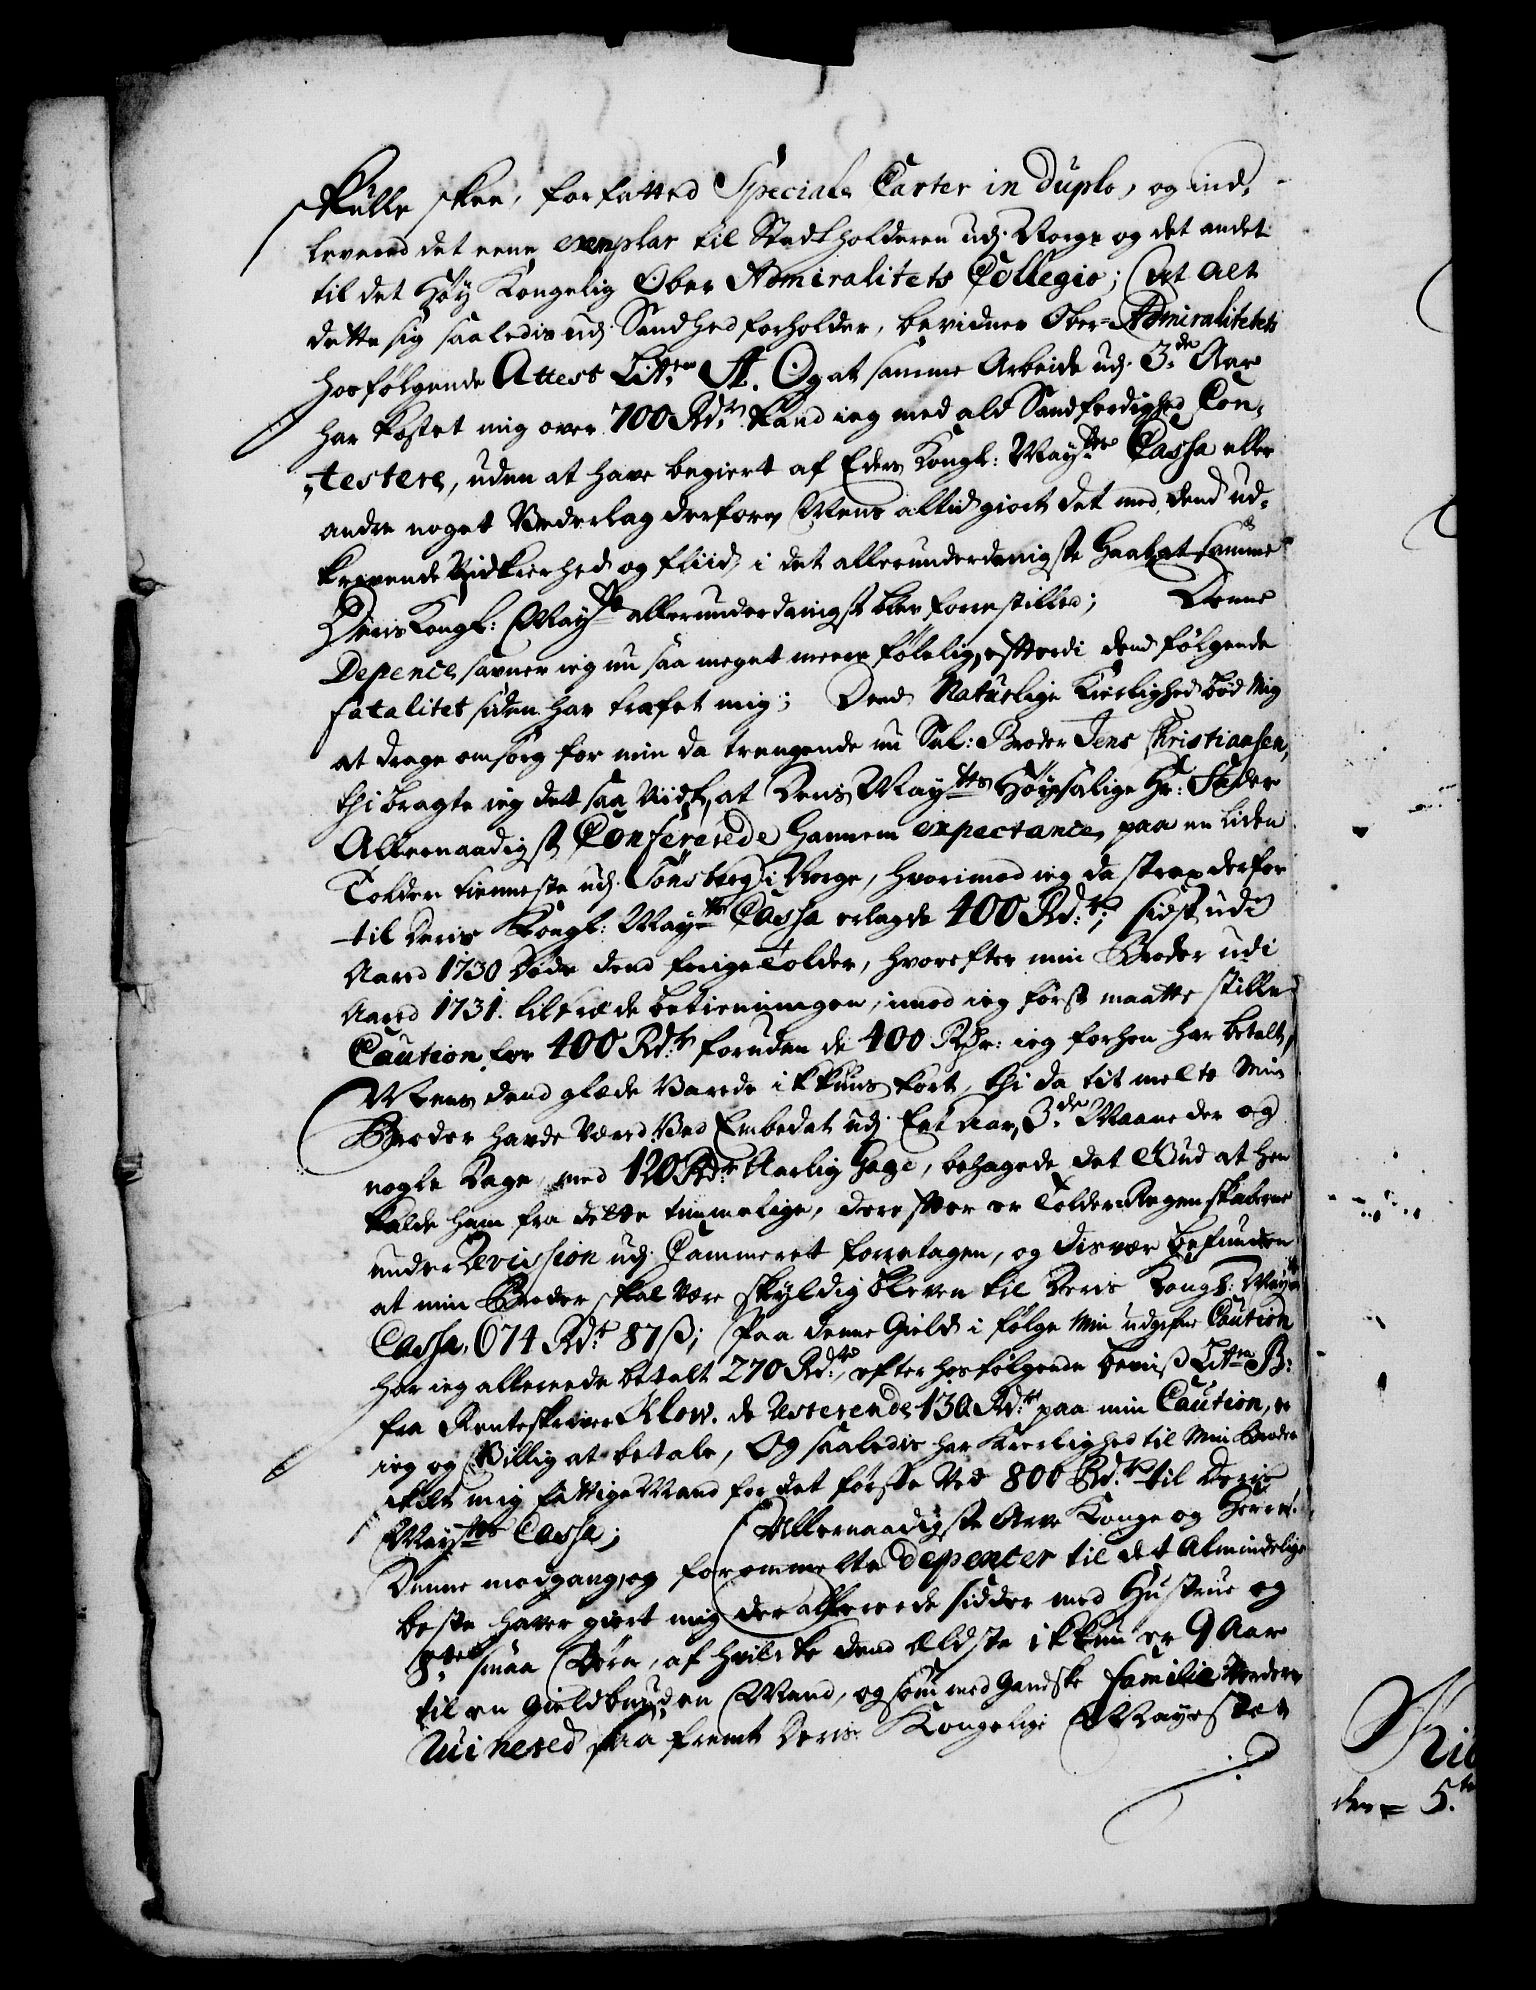 skulle skee, forfatted Speciale Carter in Duplo, og ind,
levered det eene exemplar til Stadtholderen udj Norge og det andet
til det Høy Kongelig Ober Admiralitets Collegio; At alt
dette sig saaledis udj Sandhed forholder, bevidner Ober=Admiralitetets
hosfølgende Attest Litr: A. Og at samme Arbeide udj 3de Aar
har kostet mig over 700 Rdr. kand ieg med ald Sandferdighed Con,
„testere, uden at have begiert af Eders Kongl: Mayts Cassa eller
andre noget Vederlag derfore, Mens altid giort det med dend ud,
krevende Vidkierhed og fliid, i det allerunderdanigste Haab at samme
Deris Kongl: Mayt allerunderdanigst blev forrestilled; Denne
Depence savner ieg nu saa meget meere følelig, efterdi dend følgende
fatalitet siden har trafet mig; Dend Naturlige Kierlighed bød Mig
at drage omsorg for min da trengende nu Sal: Broder Jens Christiansen,
thi bragte ieg det saa viidt, at Deris Mayts Høysalige Hr: Fader
Allernaadigst Confererede Hannem expectance paa en liden
Tolder tienneste udj Tønsberg i Norge, hvorimod ieg da strax derfor
til Deris Kongl: Mayts Cassa erlagde 400 Rd:r; sidst udi
Aared 1730 døde dend forige Tolder, hvorefter min Broder udi
Aared 1731. tiltræde betieningen, imod ieg først maatte stille
Caution for 400 Rd:r foruden de 400 Rdr: ieg forhen har betalt,
Mens dend glæde Varede ikkuns kort, thi da tit melte Min
Broder havde Været Ved Embedet udj Eet Aar, 3de Maaneder og
nogle Dage, med 120 Rdr Aarlig Gage, behagede det Gud at hen
kalde ham fra dette timmelige, derefter er Tolder Regenskaberne
under Revission udj Cammeret forretagen, og disvær befunden
at min Broder skal være skyldig bleven til Deris Kongl: Mayts
Cassa, 674 Rdr 87 ß; Paa denne Gield i følge Min udgifne Caution
har ieg allereede betalt 270 Rd:r, efter hosfølgende beviiß Litr B:
fra Renteskriver Klow. de resterende 130 Rd:r paa min Caution, er
ieg og Villig at betale, Og saaledis har Kierlighed til Min Broder
skilt mig fattige Mand for det første Ved 800 Rd:r til Deris
Mayts Cassa; Allernaadigste Arve Konge og Herre!
Denne modgang, og forommelte Depencer til det Almindelige
beste haver giort mig der allereede sidder med Hustrue og
8te smaa Børn, af hvilcke dend Eldste ikkun er 9 Aar
til en Gieldbunden Mand, og som med Gandske familie Vorder
Ruinered saa fremt Deris Kongelige Mayestet
den = 5.te